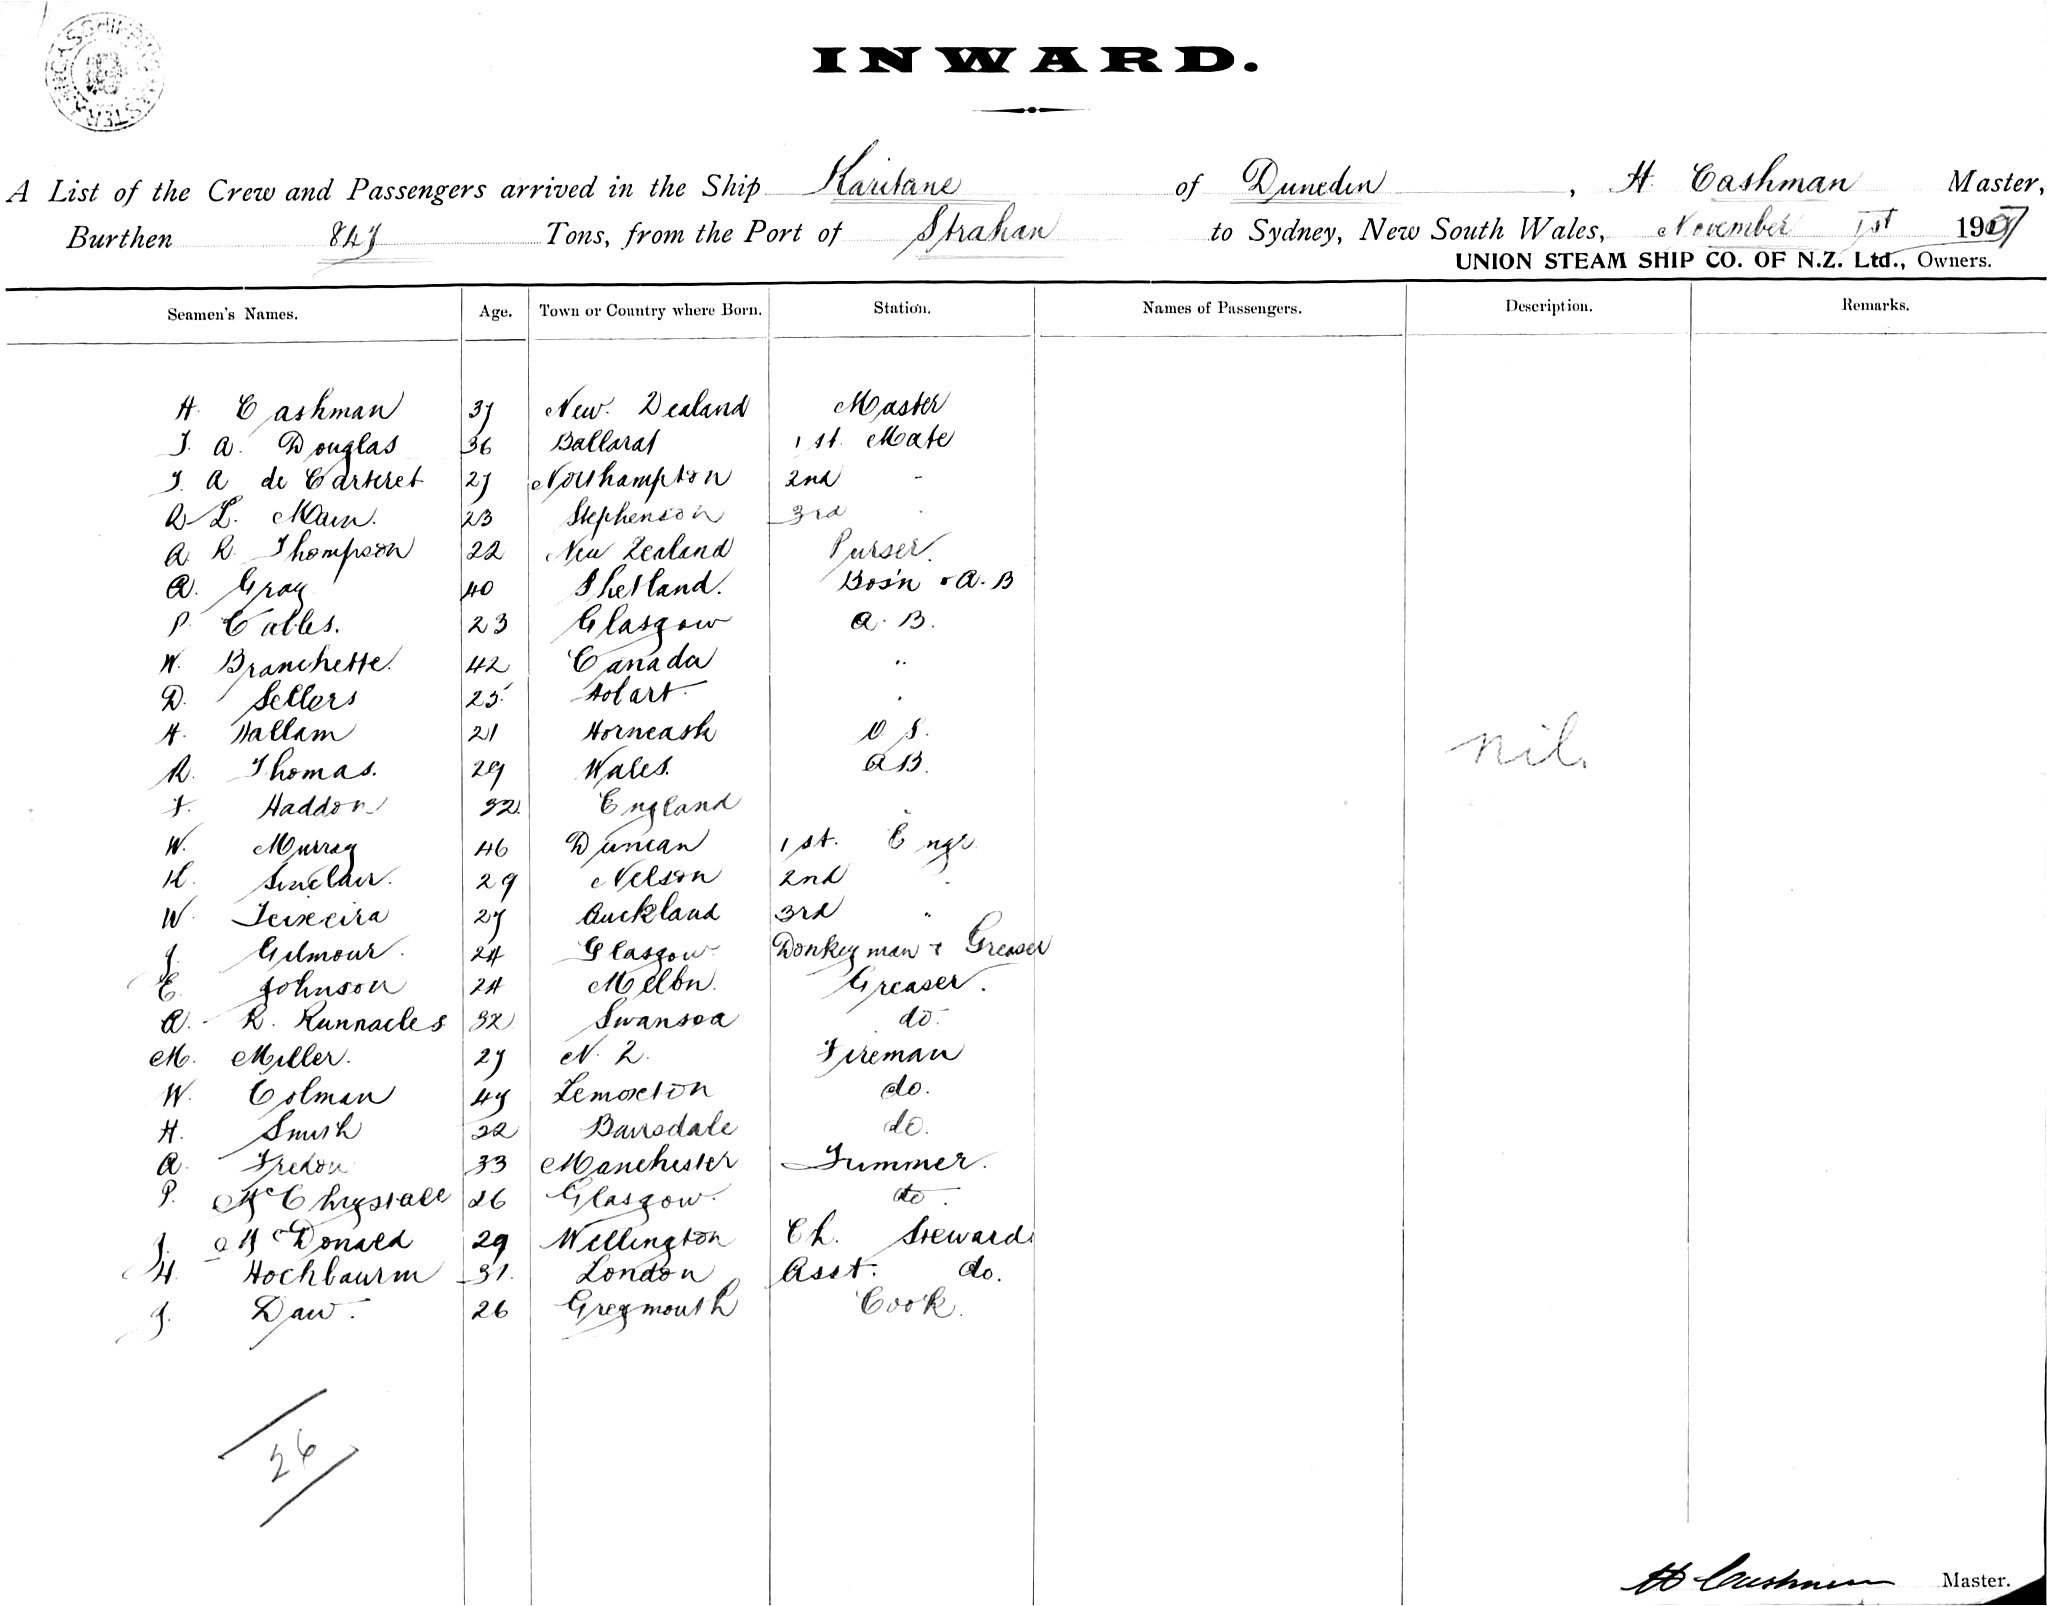 INWARD.
A List of the Crew and Passengers arrived in the Ship Karitane of Dunedin, H. Cashman Master,
Burthen 847 Tons, from the Port of Strahan to Sydney, New South Wales, November 1st 1907
UNION STEAM SHIP CO. OF N.Z. Ltd., Owners.
Seamen's Names. Age. Town or Country where Born. Station. Names of Passengers. Description. Remarks.
H. Cashman 37 New Zealand Master
J. A. Douglas 36 Ballarat 1st. Mate
J. A de Carteret 27 Northampton 2nd "
A L. Main. 23 Stephenson 3rd "
A. R. Thompson 22 New Zealand Purser.
A. Gray 40 Shetland. Bos'n & A.B
P. Cables. 23 Glasgow A.B.
W. Branchette. 42 Canada "
D. Sellers 25 Hobart "
H. Hallam 21 O.S.
R. Thomas. 29 Wales. AB.
F. Haddon 32 England "
W. Murray 46 Duncan 1st. Engr
K. Sinclair. 29 Nelson 2nd "
W. Teixeira 27 Auckland 3rd "
J. Gilmour. 24 Glasgow Donkeyman & Greaser
E. Johnson 24 Melbn. Greaser.
A. R. Runnacles 32 Swansea do.
M. Miller. 27 N.Z. Fireman
W. Colman 47 do.
H. Smith 22 Bairnsdale do.
A. Fredon 33 Manchester Trimmer.
P. McChrystall 26 Glasgow. do.
J. McDonald 29 Wellington Ch. Steward
H. Hochbaurm 31. London Asst. do.
J. Daw. 26 Greymouth Cook.
nil.
26
H Cashman Master.